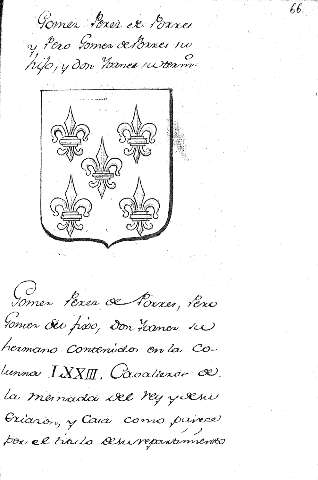 66.
Gomez Perez de Porres
y Pero Gomez de Porres su
hijo, y don Ivanez su herm.
Gomez Perez de Porres, Pero
Gomez su fijo, don Ivanez su
hermano contenidos en la Co-
lunna LXXIII. Cavalleros de
la mesnada del Rey y de su
Criazon, y Casa como parece
por el titulo de su repartimiento